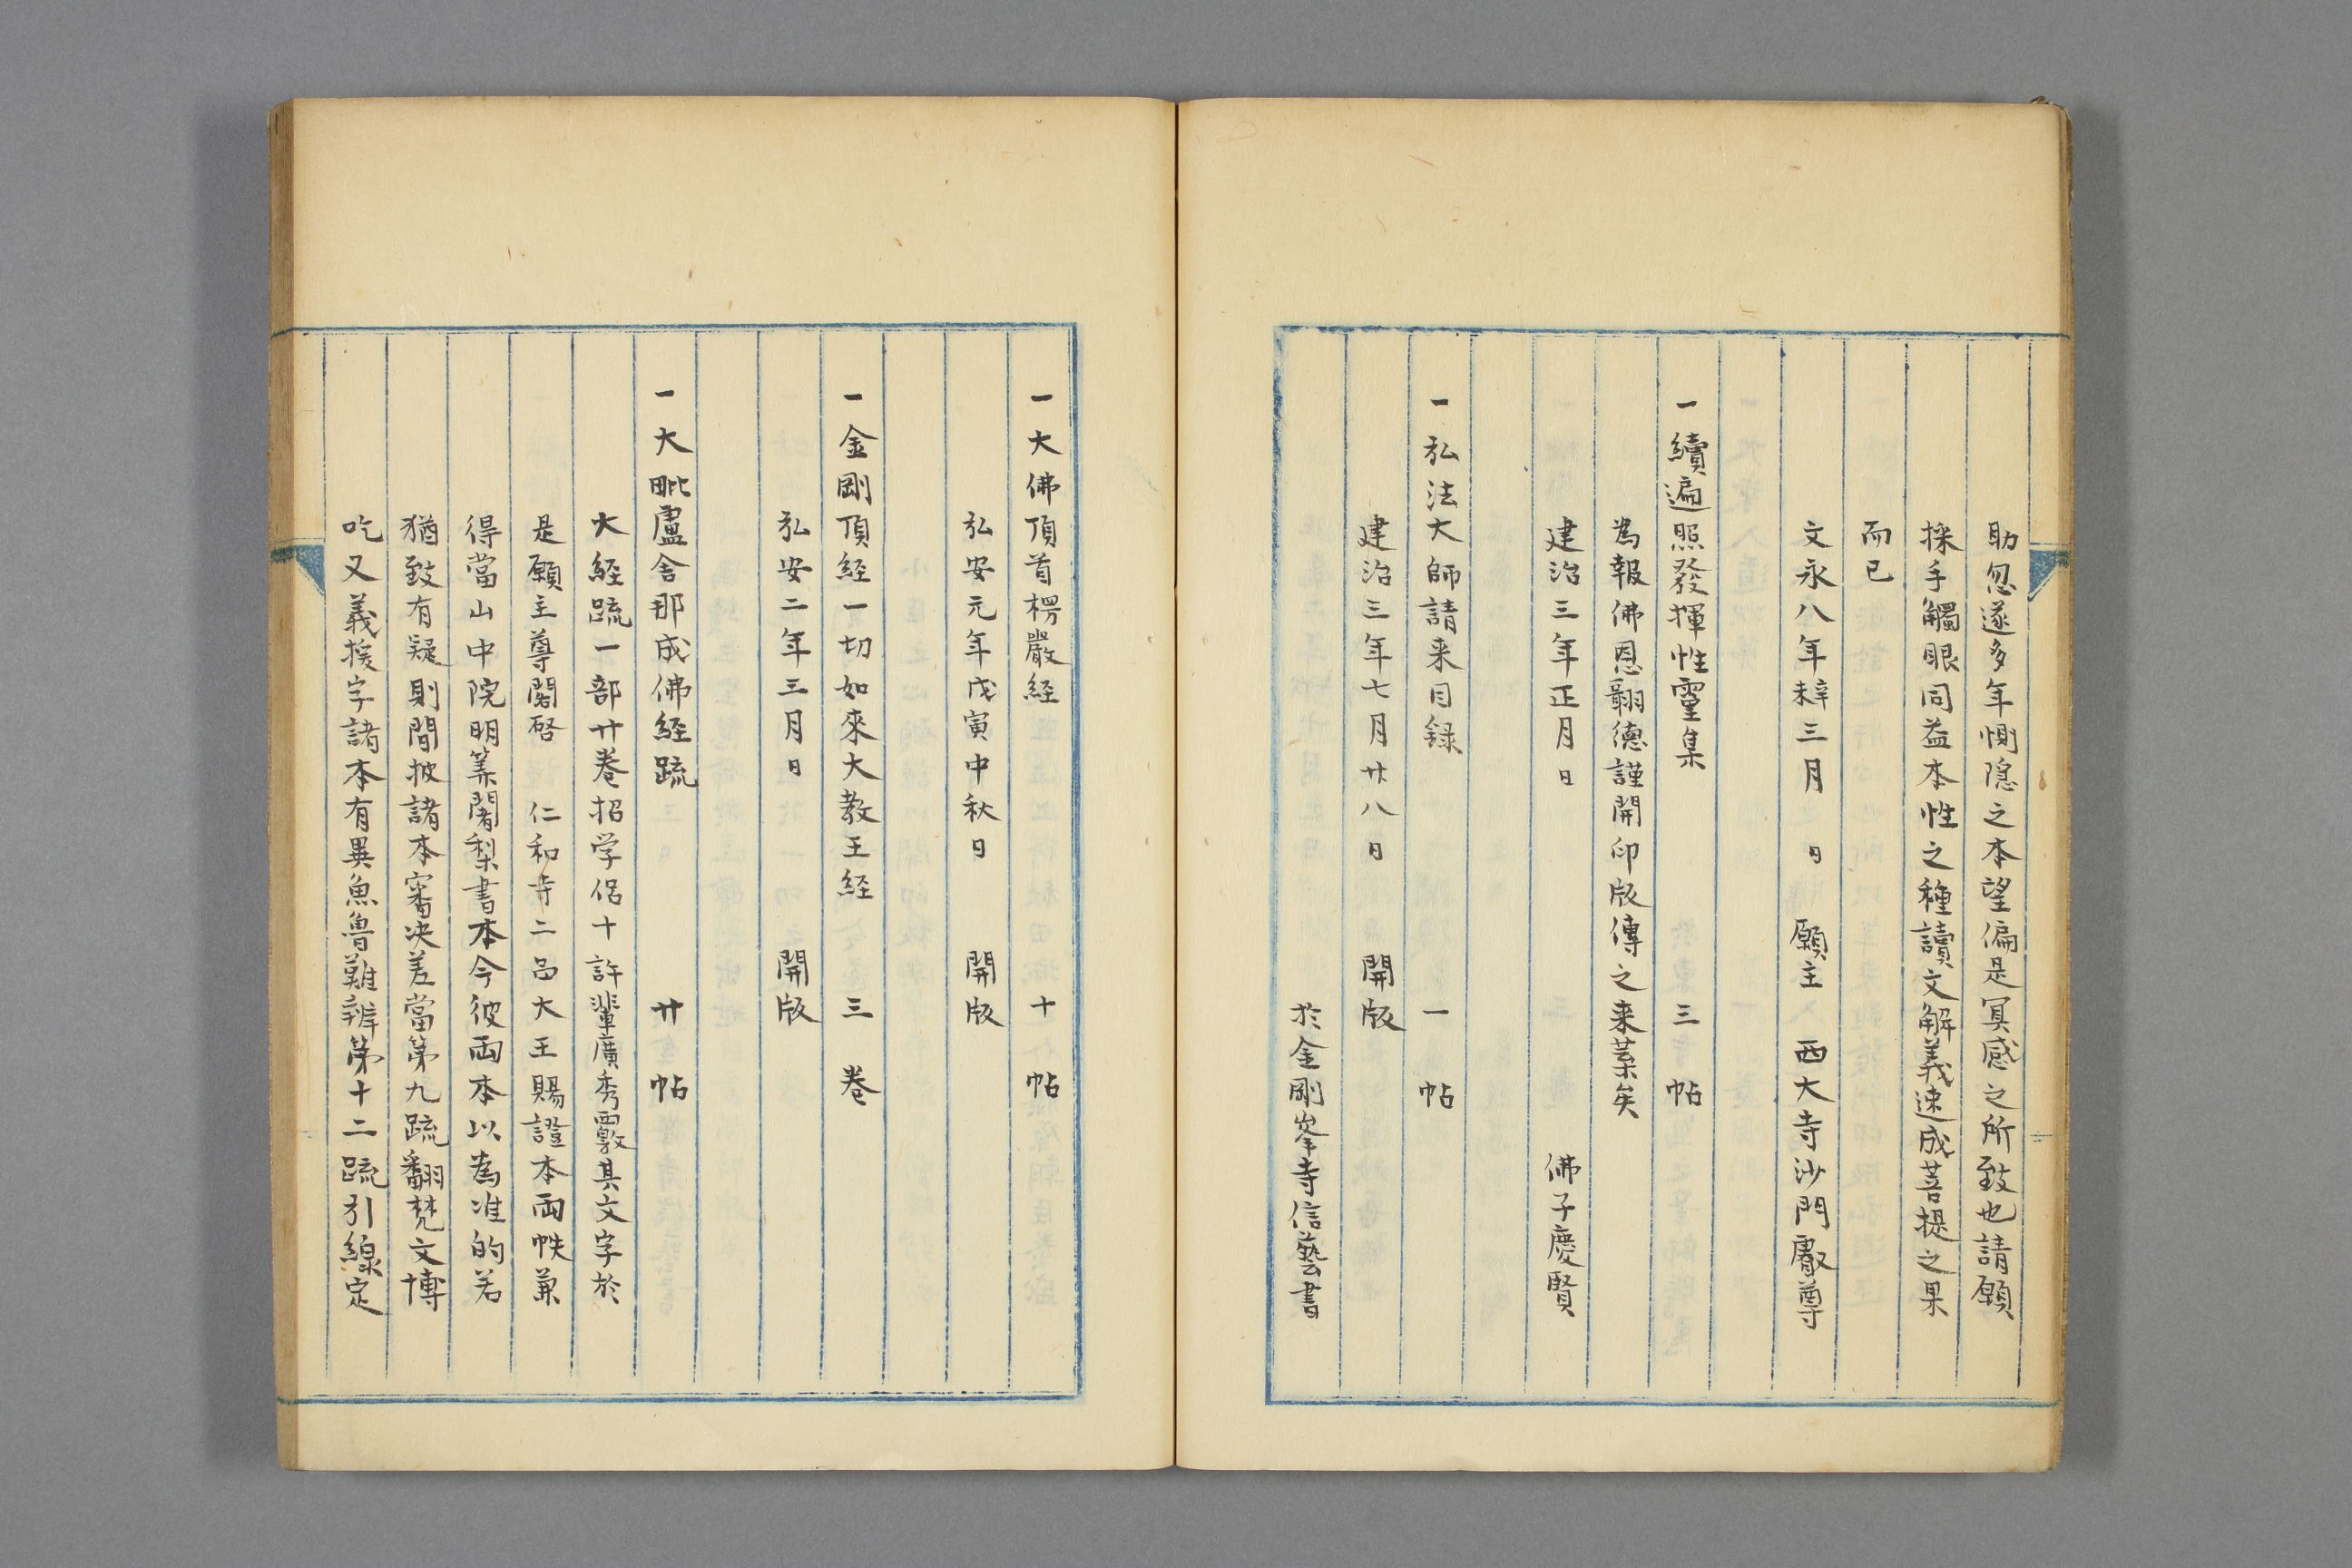 助忽遂多年惻隠之本望偏是冥感之所致也請願
採手觸眼同益本性之種讀文解義速成菩提之果
而已
文永八年辛未三月　日　願主　西大寺沙門叡尊
一續遍照發揮性霊集　三帖
為報佛恩翮徳謹開印版傳之来葉矣
建治三年正月日　佛子慶賢
一弘法大師請来目録　一帖
建治三年七月廿八日　開版
於金剛峯寺信藝書
一大佛頂首楞嚴経　十帖
弘安元年戊寅中秋日　開版
一金剛頂経一切如來大教王経　三卷
弘安二年三月日　開版
一大毗盧舎那成佛経䟽　廿帖
大経䟽一部廿巻招学侶十許輩廣秀覈其文字於
是願主尊閣啓　仁和寺二品大王賜證本両帙兼
得當山中院明筭闍梨書本今彼両本以為准的若
猶致有疑則間披諸本審决差當第九䟽翻梵文博
吃又義挨字諸本有異魚魯難辨第十二䟽引線定